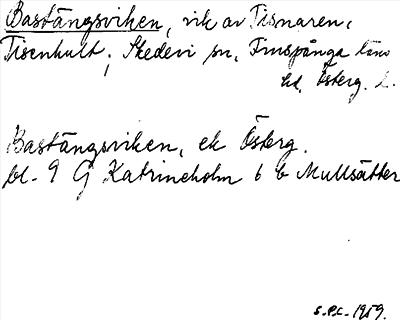 Bastängsviken, vik av Tisnaren,
Tisenhult, Skedevi sn, Finspånga läns
hd, Österg. L.
Bastängsviken, ek Österg.
bl. 9 G Katrineholm 6 b Mullsätter
1959.